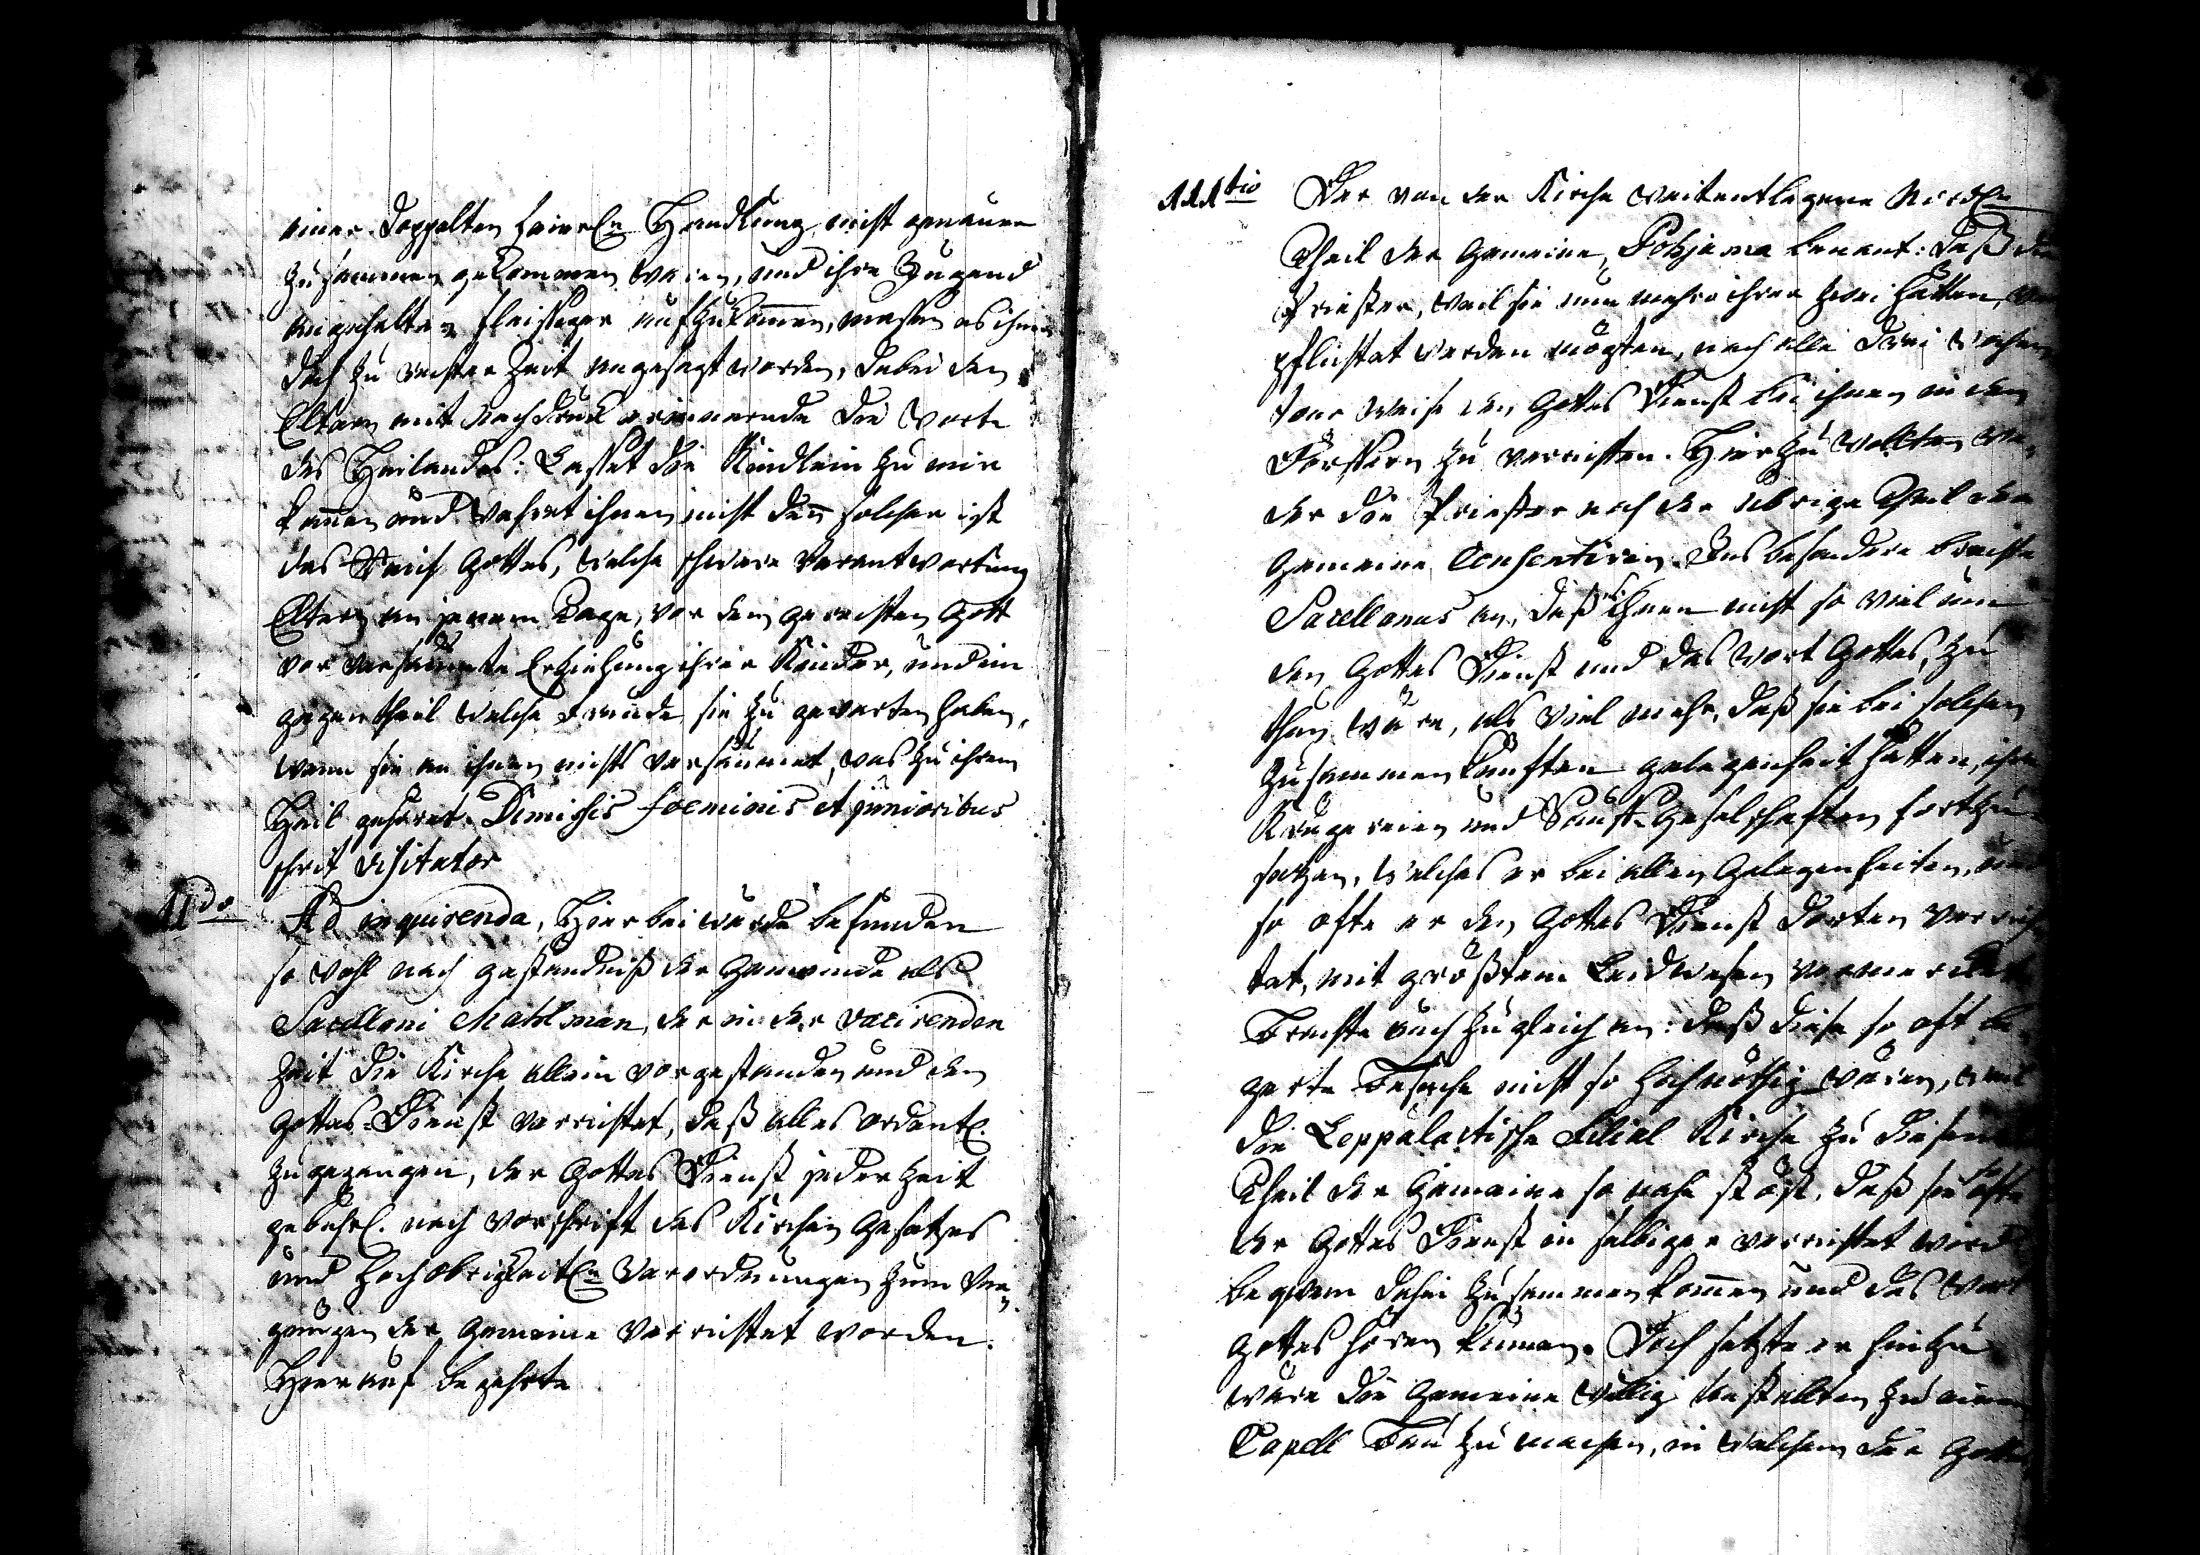 einer doppelten feierln Handlung, nicht genauer
zusammen gekommen wären, und ihre Jugend
angehalten fleissiger aufzukom̄en, massen es ihnen
doch zu rechter Zeit angesagt worden, dabei den
Eltern mit Nachdruk erinnernde die Worte
des Heilandes: Lasset die Kindlein zu mir
kom̄en und wehret ihnen nicht den̄ solcher ist
das Reich Gottes, welche schwere Verantwortung
Eltern an jenem Tage, vor dem gerechten Gott
vor versäumte Erziehung ihrer Kinder, und im
gegentheil welche Freude sie zu gewarten haben,
wenn sie an ihnen nichts versäumet, was zu ihrem
Heil gehöret. Dimissis foeminis et junioribus
schrit Visitator
IIdo Ad inquirenda, Hierbei wurde befunden
so wohl nach geständniß der Gemeinde als
Sacellani Mahlman, der in der vacirenden
Zeit die Kirche allein vorgestanden und den
Gottes-Dienst verrichtet, daß alles ordentl.
zugegangen, der Gottes Dienst jederzeit
gebührl. nach Vorschrift des Kirchen Gesetzes
und Hochobrigkeitln Verordnungen zum Ver-
gnügen der Gemeine verrichtet worden.
Hierauf begehrte
IIItio Der von der Kirche weitentlegene Nordln
Theil der Gemeine, Pohjama benant: daß die
Priester, weil sie nun mehro ihrer zwei hätten, ver
pflichtet werden mögten, nach alle drei Wochen
tour weise den Gottes Dienst bei ihnen in den
Dörffern zu verrichten. Hierzu wollten we-
der die Priester noch der übrige Theil der
Gemeine Consentiren. Insbesondere brachte
Sacellanus an, daß Ihnen nicht so viel um
den Gottes Dienst und das Wort Gottes, zu
thun wäre, als viel mehr, daß sie bei solchen
Zusammenkünften gelegenheit hätten, ihre
Krügereien und Sauff-Geselschaften fortzu
setzen, welches er bei allen Gelegenheiten, und
so ofte er den Gottes Dienst dorten verrich
tet, mit größtem Leidwesen vermercket
Brachte auch zugleich an: daß diese so oft be
gerte Besuche nicht so hochnöthig wären, weil
die Leppalactische Filial Kirche zu diesem
Theil der Gemeine so nahe stöst, daß sie so ofte
der Gottes Dienst in selbiger verrichtet wird
bequem dahin zusammen kom̄en und das Wort
Gottes hören können. Doch setzte er hinzu
wäre die Gemeine willig anstalten zu einem
Capell Bau zu machen, in welchem der Gottes